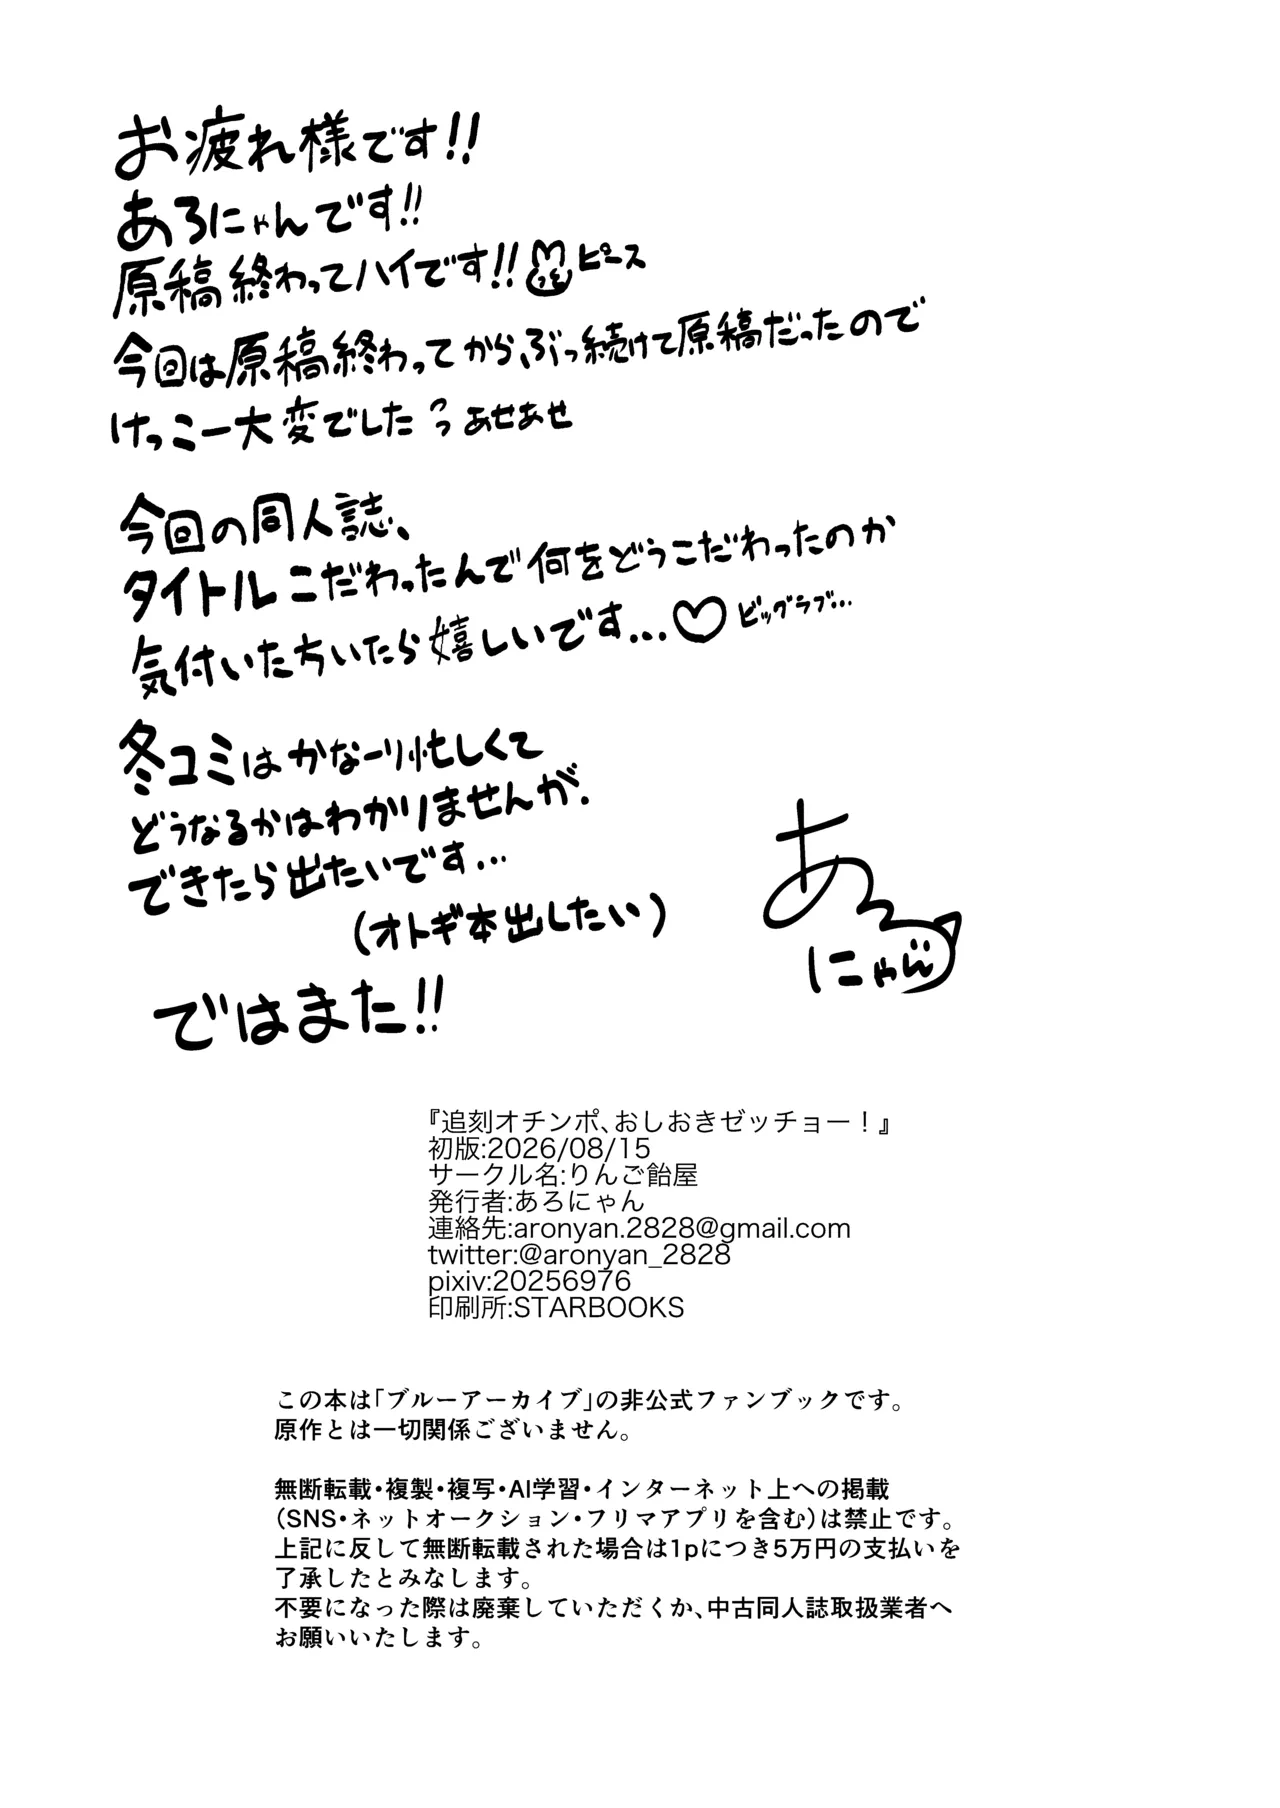 お疲れ様です!!
あろにゃんです!!
原稿終わってハイです!! ピース
今回は原稿終わってから、ぶっ続けて原稿だったので
けっこー大変でした あせあせ
今回の同人誌、
タイトルこだわったんで何をどうこだわったのか
気付いた方いたら嬉しいです…♡ビッグラブ…
冬コミはかなーり忙しくて
どうなるかはわかりませんが、
できたら出たいです…
(オトギ本出したい)
ではまた!!
あろ
にゃん
『追刻オチンポ、おしおきゼッチョー！』
初版:2026/08/15
サークル名:りんご飴屋
発行者:あろにゃん
連絡先:aronyan.2828@gmail.com
twitter:@aronyan_2828
pixiv:20256976
印刷所:STARBOOKS
この本は｢ブルーアーカイブ｣の非公式ファンブックです。
原作とは一切関係ございません。
無断転載･複製･複写･AI学習･インターネット上への掲載
（SNS･ネットオークション･フリマアプリを含む）は禁止です。
上記に反して無断転載された場合は1pにつき5万円の支払いを
了承したとみなします。
不要になった際は廃棄していただくか、中古同人誌取扱業者へ
お願いいたします。